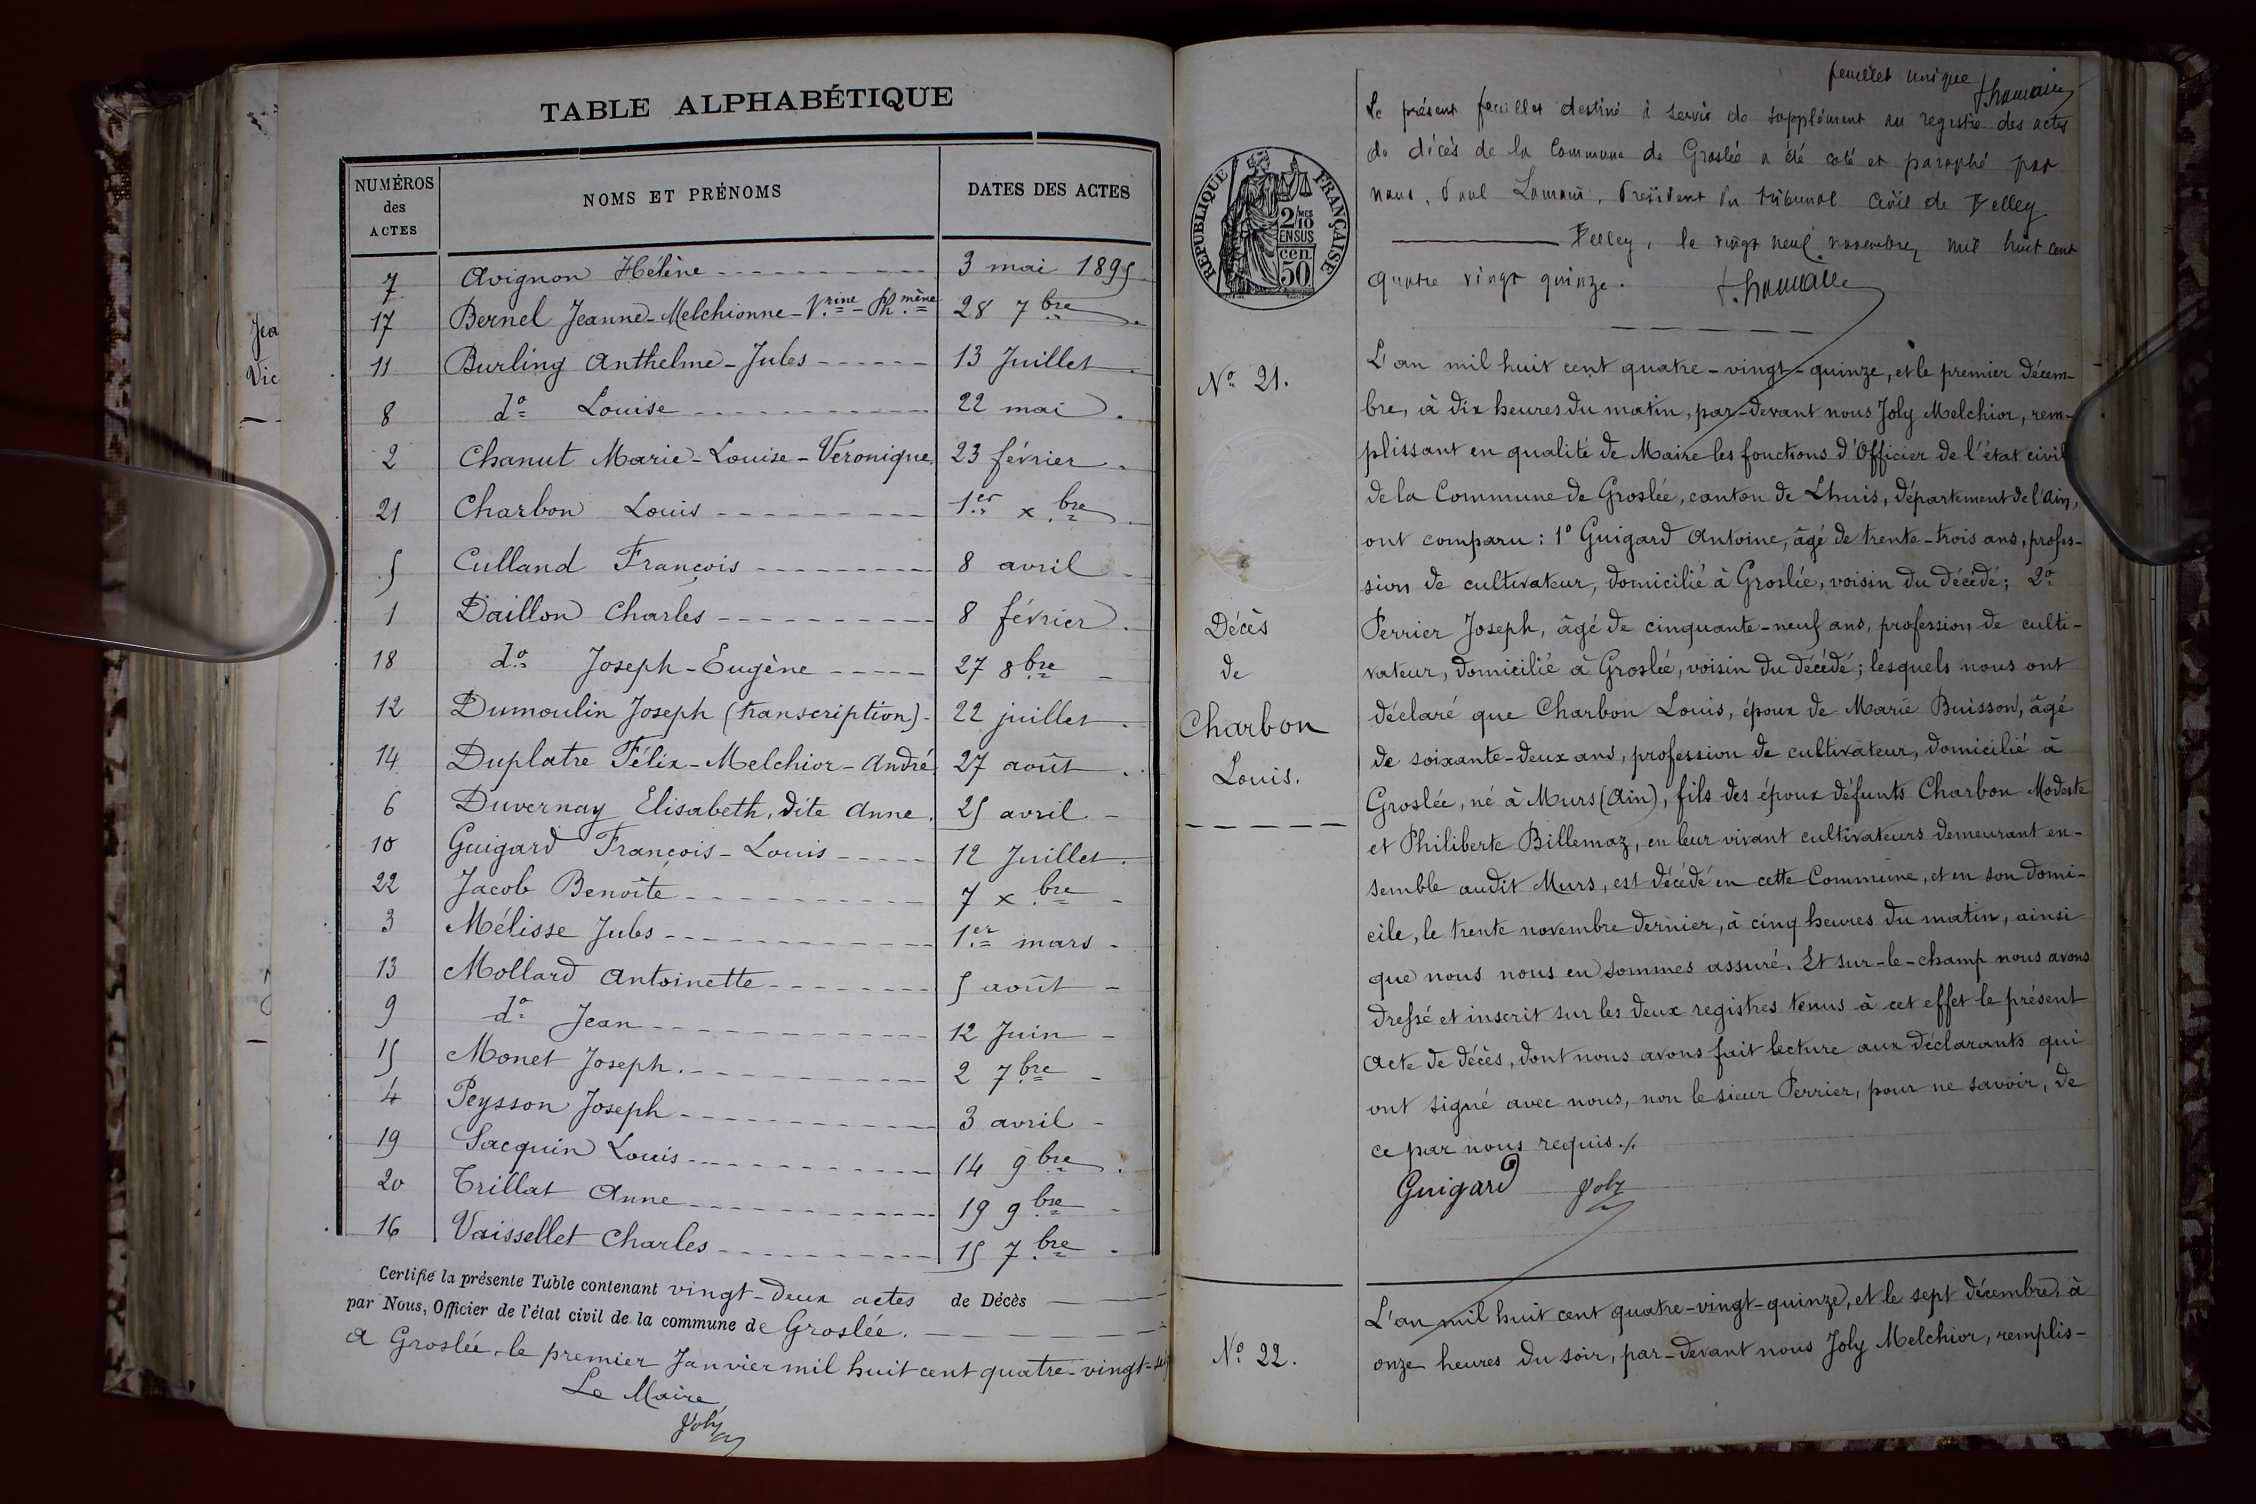 TABLE ALPHABÉTIQUE
NUMÉROS des ACTES NOMS ET PRÉNOMS DATES DES ACTES
7 Avignon Hélène 3 mai 1895
17 Bernel Jeanne-Melchionne-V.rine-Ph.mène 28 7bre
11 Burling Anthelme-Jules 13 Juillet
8 do Louise 22 mai
2 Chanut Marie-Louise-Véronique 23 février
21 Charbon Louis 1er xbre
5 Culland François 8 avril
1 Daillon Charles 8 février
18 do Joseph-Eugène 27 8bre
12 Dumoulin Joseph (transcription) 22 juillet
14 Duplatre Félix-Melchior-André 27 août
6 Duvernay Elisabeth, dite Anne 25 avril
10 Guigard François-Louis 12 Juillet
22 Jacob Benoîte 7 xbre
3 Mélisse Jules 1er mars
13 Mollard Antoinette 5 août
9 do Jean 12 Juin
15 Monet Joseph 2 7bre
4 Peysson Joseph 3 avril
19 Sacquin Louis 14 9bre
20 Trillat Anne 19 9bre
16 Vaissellet Charles 15 7bre
Certifié la présente Table contenant vingt-deux actes de Décès
par Nous, Officier de l'état civil de la commune de Groslée.
A Groslée, le premier Janvier mil huit cent quatre-vingt-
Le Maire,
Joly
Jea
Vic
feuillet unique
Le présent feuillet destiné à servir de supplément au registre des actes
de décès de la Commune de Groslée a été coté et paraphé par
nous, Paul Lamain, Président du tribunal civil de Belley
Belley, le vingt neuf novembre mil huit cent
quatre vingt quinze.
RÉPUBLIQUE FRANÇAISE
2/10 MES
EN SUS
50 cen.
No 21.
Décès
de
Charbon
Louis.
L'an mil huit cent quatre-vingt-quinze, et le premier décem-
bre, à dix heures du matin, par-devant nous Joly Melchior, rem-
plissant en qualité de Maire les fonctions d'Officier de l'état civil
de la Commune de Groslée, canton de Lhuis, département de l'Ain,
ont comparu: 1o Guigard Antoine, âgé de trente-trois ans, profes-
sion de cultivateur, domicilié à Groslée, voisin du décédé; 2o
Perrier Joseph, âgé de cinquante-neuf ans, profession de culti-
vateur, domicilié à Groslée, voisin du décédé; lesquels nous ont
déclaré que Charbon Louis, époux de Marie Buisson, âgé
de soixante-deux ans, profession de cultivateur, domicilié à
Groslée, né à Murs (Ain), fils des époux défunts Charbon Modeste
et Philiberte Billemaz, en leur vivant cultivateurs demeurant en-
semble audit Murs, est décédé en cette Commune, et en son domi-
cile, le trente novembre dernier, à cinq heures du matin, ainsi
que nous nous en sommes assuré. Et sur-le-champ nous avons
dressé et inscrit sur les deux registres tenus à cet effet le présent
acte de décès, dont nous avons fait lecture aux déclarants qui
ont signé avec nous, non le sieur Perrier, pour ne savoir, de
ce par nous requis./.
Guigard Joly
No 22.
L'an mil huit cent quatre-vingt-quinze, et le sept décembre, à
onze heures du soir, par-devant nous Joly Melchior, remplis-